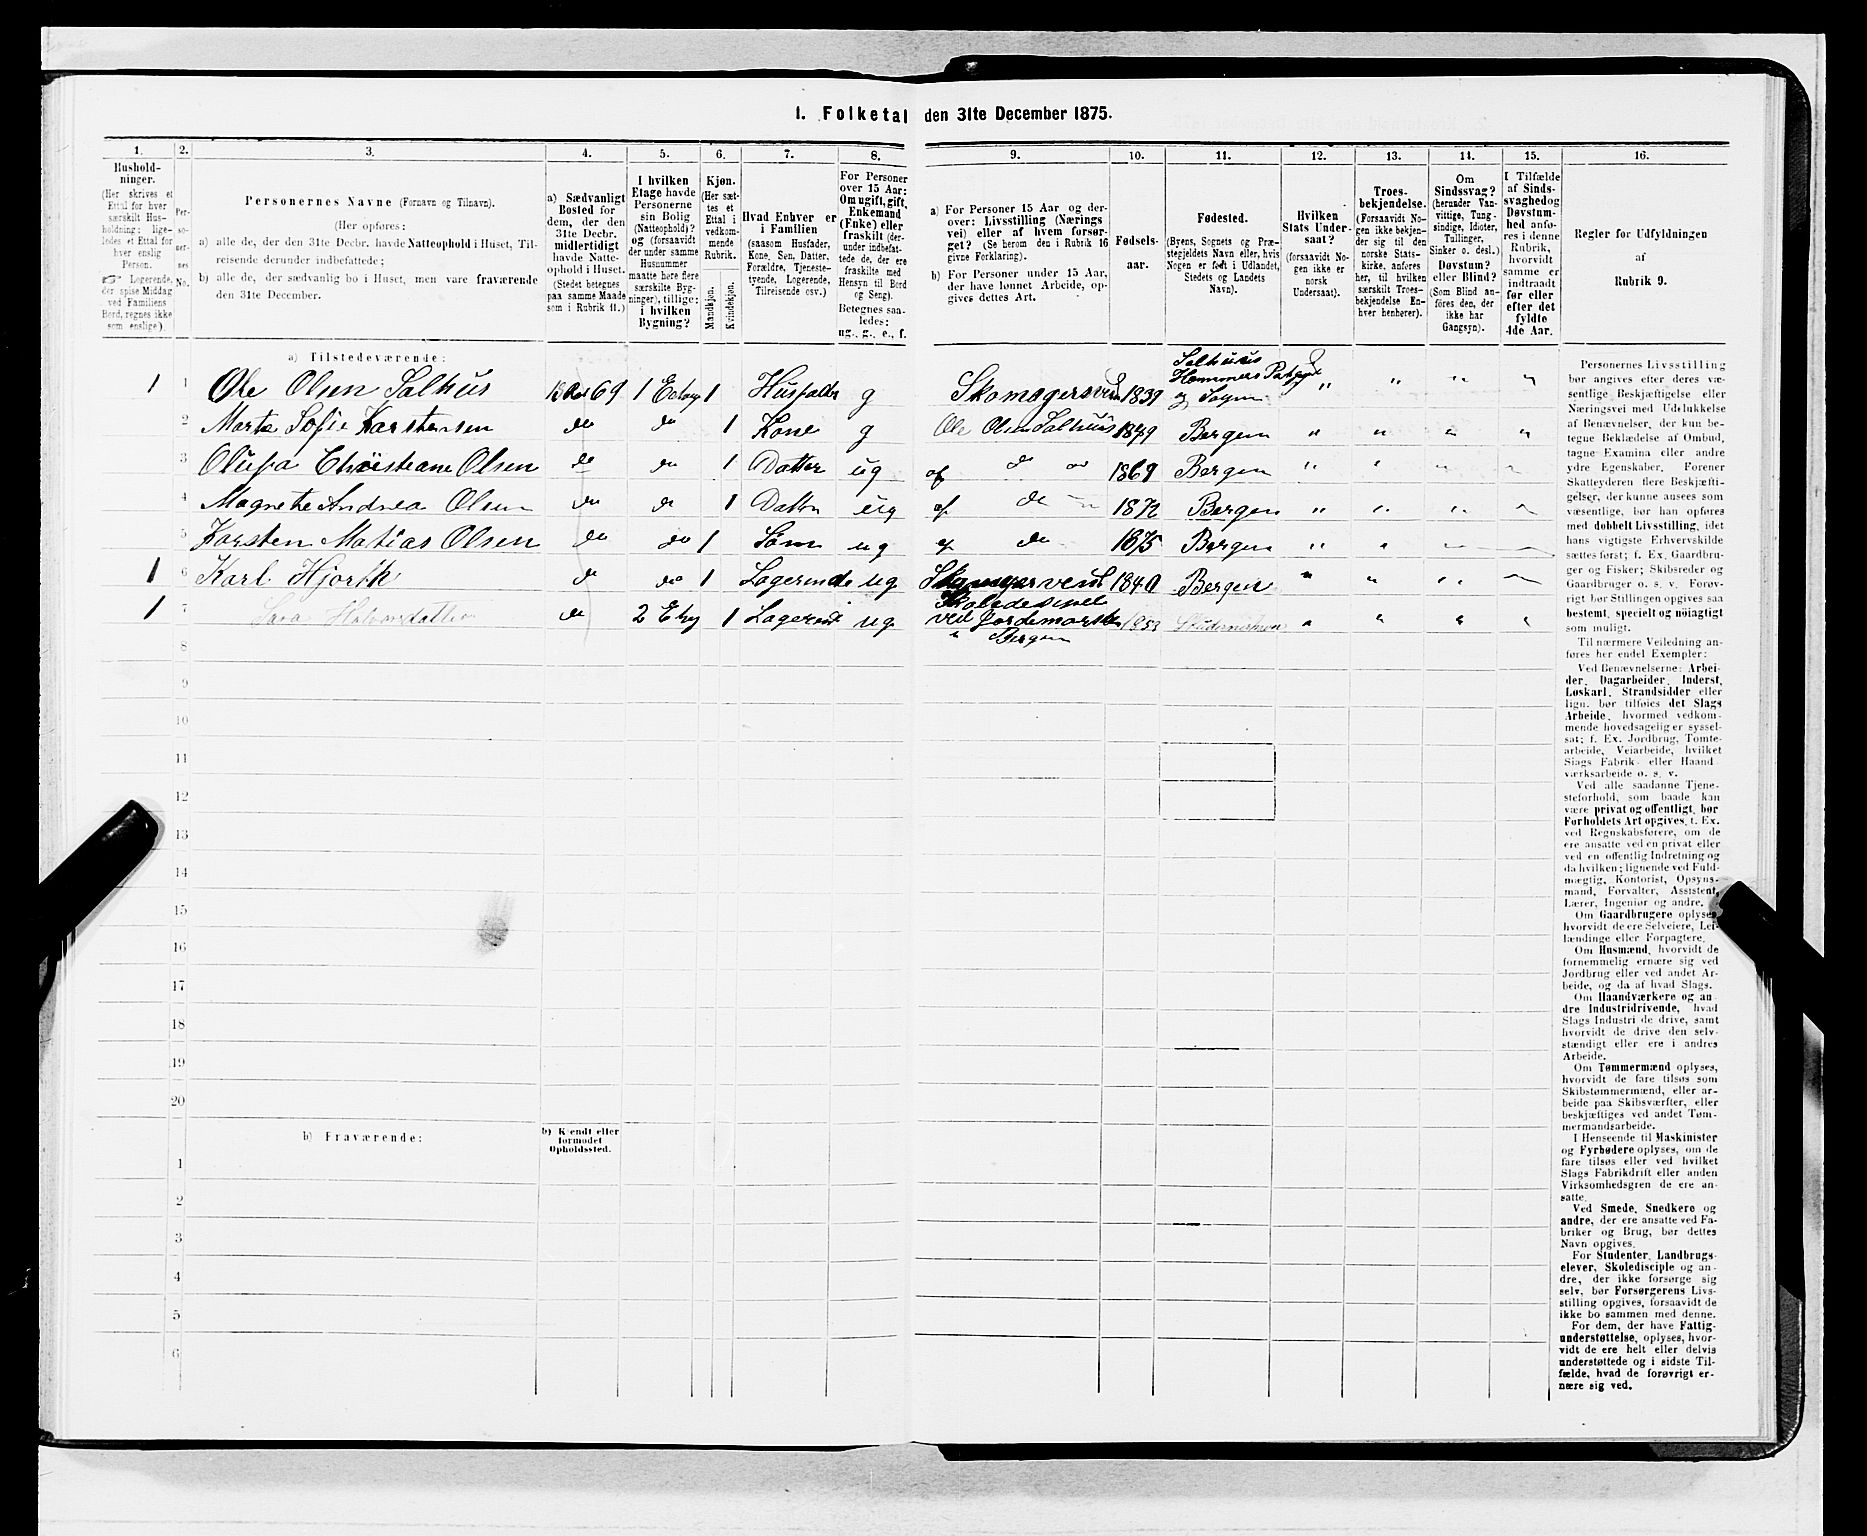 1. Folketal den 31te December 1875.
1. 2. 3. 4. 5. 6. 7. 8. 9. 10. 11. 12. 13. 14. 15. 16.
Hushold-
ninger.
(Her skrives et
Ettal for hver
særskilt Hus-
holdning: lige-
ledes et Ettal for
hver enslig
Person.
Logerende,
der spise Middag
ved Familiens
Bord, regnes ikke
som enslige).
Per-
so-
ner-
nes
No.
Personernes Navne (Fornavn og Tilnavn).
(Her opføres:
a) alle de, der den 31te Decbr. havde Natteophold i Huset, Til-
reisende derunder indbefattede;
b) alle de, der sædvanlig bo i Huset, men vare fraværende
den 31te December.
a) Sædvanligt
Bosted for
dem, der den
31te Decbr.
midlertidigt
havde Natte-
ophold i Huset.
(Stedet betegnes
paa samme Maade
som i Rubrik 11.)
I hvilken
Etage havde
Personerne
sin Bolig
(Natteophold)?
og (forsaavidt
der under samme
Husnummer
maatte høre flere
særskilte Byg-
ninger), tillige:
i hvilken
Bygning?
Kjøn.
(Her sæt-
tes et
Ettal i
vedkom-
mende
Rubrik.
Mandkjøn.
Kvindekjøn.
Hvad Enhver er
i Familien
(saasom Husfader,
Kone, Søn, Datter,
Forældre, Tjeneste-
tyende, Logerende,
Tilreisende osv.)
For Personer
over 15 Aar:
Om ugift, gift,
Enkemand
(Enke) eller
fraskilt (der-
under indbefat-
tede de, der ere
fraskilte med
Hensyn til Bord
og Seng).
Betegnes saa-
ledes:
ug., g., e., f.
a) For Personer 15 Aar og der-
over: Livsstilling (Nærings
vei) eller af hvem forsør-
get? (Se herom den i Rubrik 16
givne Forklaring).
b) For Personer under 15 Aar,
der have lønnet Arbeide, op-
gives dettes Art.
Fødsels-
aar.
Fødested.
(Byens, Sognets og Præ-
stegjeldets Navn eller, hvis
Nogen er født i Udlandet,
Stedets og Landets
Navn).
Hvilken
Stats Under-
saat?
(forsaavidt No-
gen ikke er
norsk
Undersaat).
Troes-
bekjendelse.
(Forsaavidt No-
gen ikke bekjen-
der sig til den
norske Stats-
kirke, anføres
her, til hvilken
særskilt Troes-
bekjendelse En-
hver henhører).
Om
Sindssvag?
(herunder Van-
vittige, Tung-
sindige, Idioter,
Tullinger,
Sinker o. desl.)
Døvstum?
eller Blind?
(Som Blind an-
føres den, der
ikke har
Gangsyn).
I Tilfælde
af Sinds-
svaghed og
Døvstum-
hed anfø-
res i denne
Rubrik,
hvorvidt
samme er
indtraadt
før eller
efter det
fyldte
4de Aar.
Regler for Udfyldningen
af
Rubrik 9.
a) Tilstedeværende:
1 1 Ole Olsen Salhus 69 1 Etage 1 Husfader g Skomagersvend 1839 Salhuus Hammers og Sogn " " " "
2 Marta Sofie Karstensen do do 1 Kone g Ole Olsen Salhuus 1849 Bergen " " " "
3 Olufa Christiane Olsen do do 1 Datter ug af do 1869 Bergen " " " "
4 Magrete Andrea Olsen do do 1 Datter ug af do 1872 Bergen " " " "
5 Karsten Matias Olsen do do 1 Sønn ug af do 1875 Bergen " " " "
1 6 Karl Hjorth do do 1 Logerende ug 1840 Bergen " " " "
1 7 Sara Halvorsdatter do 2 Etag 1 Logerende ug ved Jordemorskolen i Bergen 1853 " " " "
8
9
10
11
12
13
14
15
16
17
18
19
20
b) Fraværende:
b) Kjendt eller
formodet
Opholdssted.
1
2
3
4
5
6
Personernes Livsstilling
bør angives efter deres væ-
sentlige Beskjæftigelse eller
Næringsvei med Udelukkelse
af Benævnelser, der kun be-
tegne Beklædelse af Ombud,
tagne Examina eller andre
ydre Egenskaber. Forener
Skatteyderen flere Beskjæfti-
gelser, der kunne ansees som
væsentlige, bør han opføres
med dobbelt Livsstilling, idet
hans vigtigste Erhvervskilde
sættes først; f. Ex. Gaardbru-
ger og Fisker; Skibsreder og
Gaardbruger o. s. v. Forøv-
rigt bør Stillingen opgives saa
bestemt, specielt og nøiagtigt
som muligt.
Til nærmere Veiledning an-
føres her endel Exempler:
Ved Benævnelserne: Arbei-
der, Dagarbeider, Inderst,
Løskarl, Strandsidder eller
lign. bør tilføies det Slags
Arbeide, hvormed vedkom-
mende hovedsagelig er syssel-
sat; f. Ex. Jordbrug, Tomte-
arbeide, Veiarbeide, hvilket
Slags Fabrik- eller Haand-
værksarbeide o. s. v.
Ved alle saadanne Tjene-
steforhold, som baade kan
være privat og offentligt, bør
Forholdets Art opgives, f. Ex.
ved Regnskabsførere, om de
ere ansatte ved en privat eller
ved en offentlig Indretning og
da hvilken; lignende ved Fuld-
mægtig, Kontorist, Opsyns-
mand, Forvalter, Assistent,
Lærer, Ingeniør og andre.
Om Gaardbrugere oplyses,
hvorvidt de ere Selveiere, Lei-
lændinge eller Forpagtere.
Om Husmænd, hvorvidt de
fornemmelig ernære sig ved
Jordbrug eller ved andet Ar-
beide, og da af hvad Slags.
Om Haandværkere og an-
dre Industridrivende, hvad
Slags Industri de drive, samt
hvorvidt de drive den selv-
stændigt eller ere i andres
Arbeide.
Om Tømmermænd oplyses,
hvorvidt de fare tilsøs som
Skibstømmermænd, eller ar-
beide paa Skibsværfter, eller
beskjæftiges ved andet Tøm-
mermandsarbeide.
I Henseende til Maskinister
og Fyrbødere oplyses, om de
fare tilsøs eller ved hvilket
Slags Fabrikdrift eller anden
Virksomhedsgren de ere an-
satte.
Ved Smede, Snedkere og
andre, der ere ansatte ved Fa-
briker og Brug, bør dettes
Navn opgives.
For Studenter, Landbrugs-
elever, Skoledisciple og an-
dre, der ikke forsørge sig
selv, bør Forsørgerens Livs-
stilling opgives, forsaavidt de
ikke bo sammen med denne.
For dem, der have Fattig-
understøttelse, oplyses, hvor-
vidt de ere helt eller delvis
understøttede og i sidste Til-
fælde, hvad de forøvrigt er-
nære sig ved.